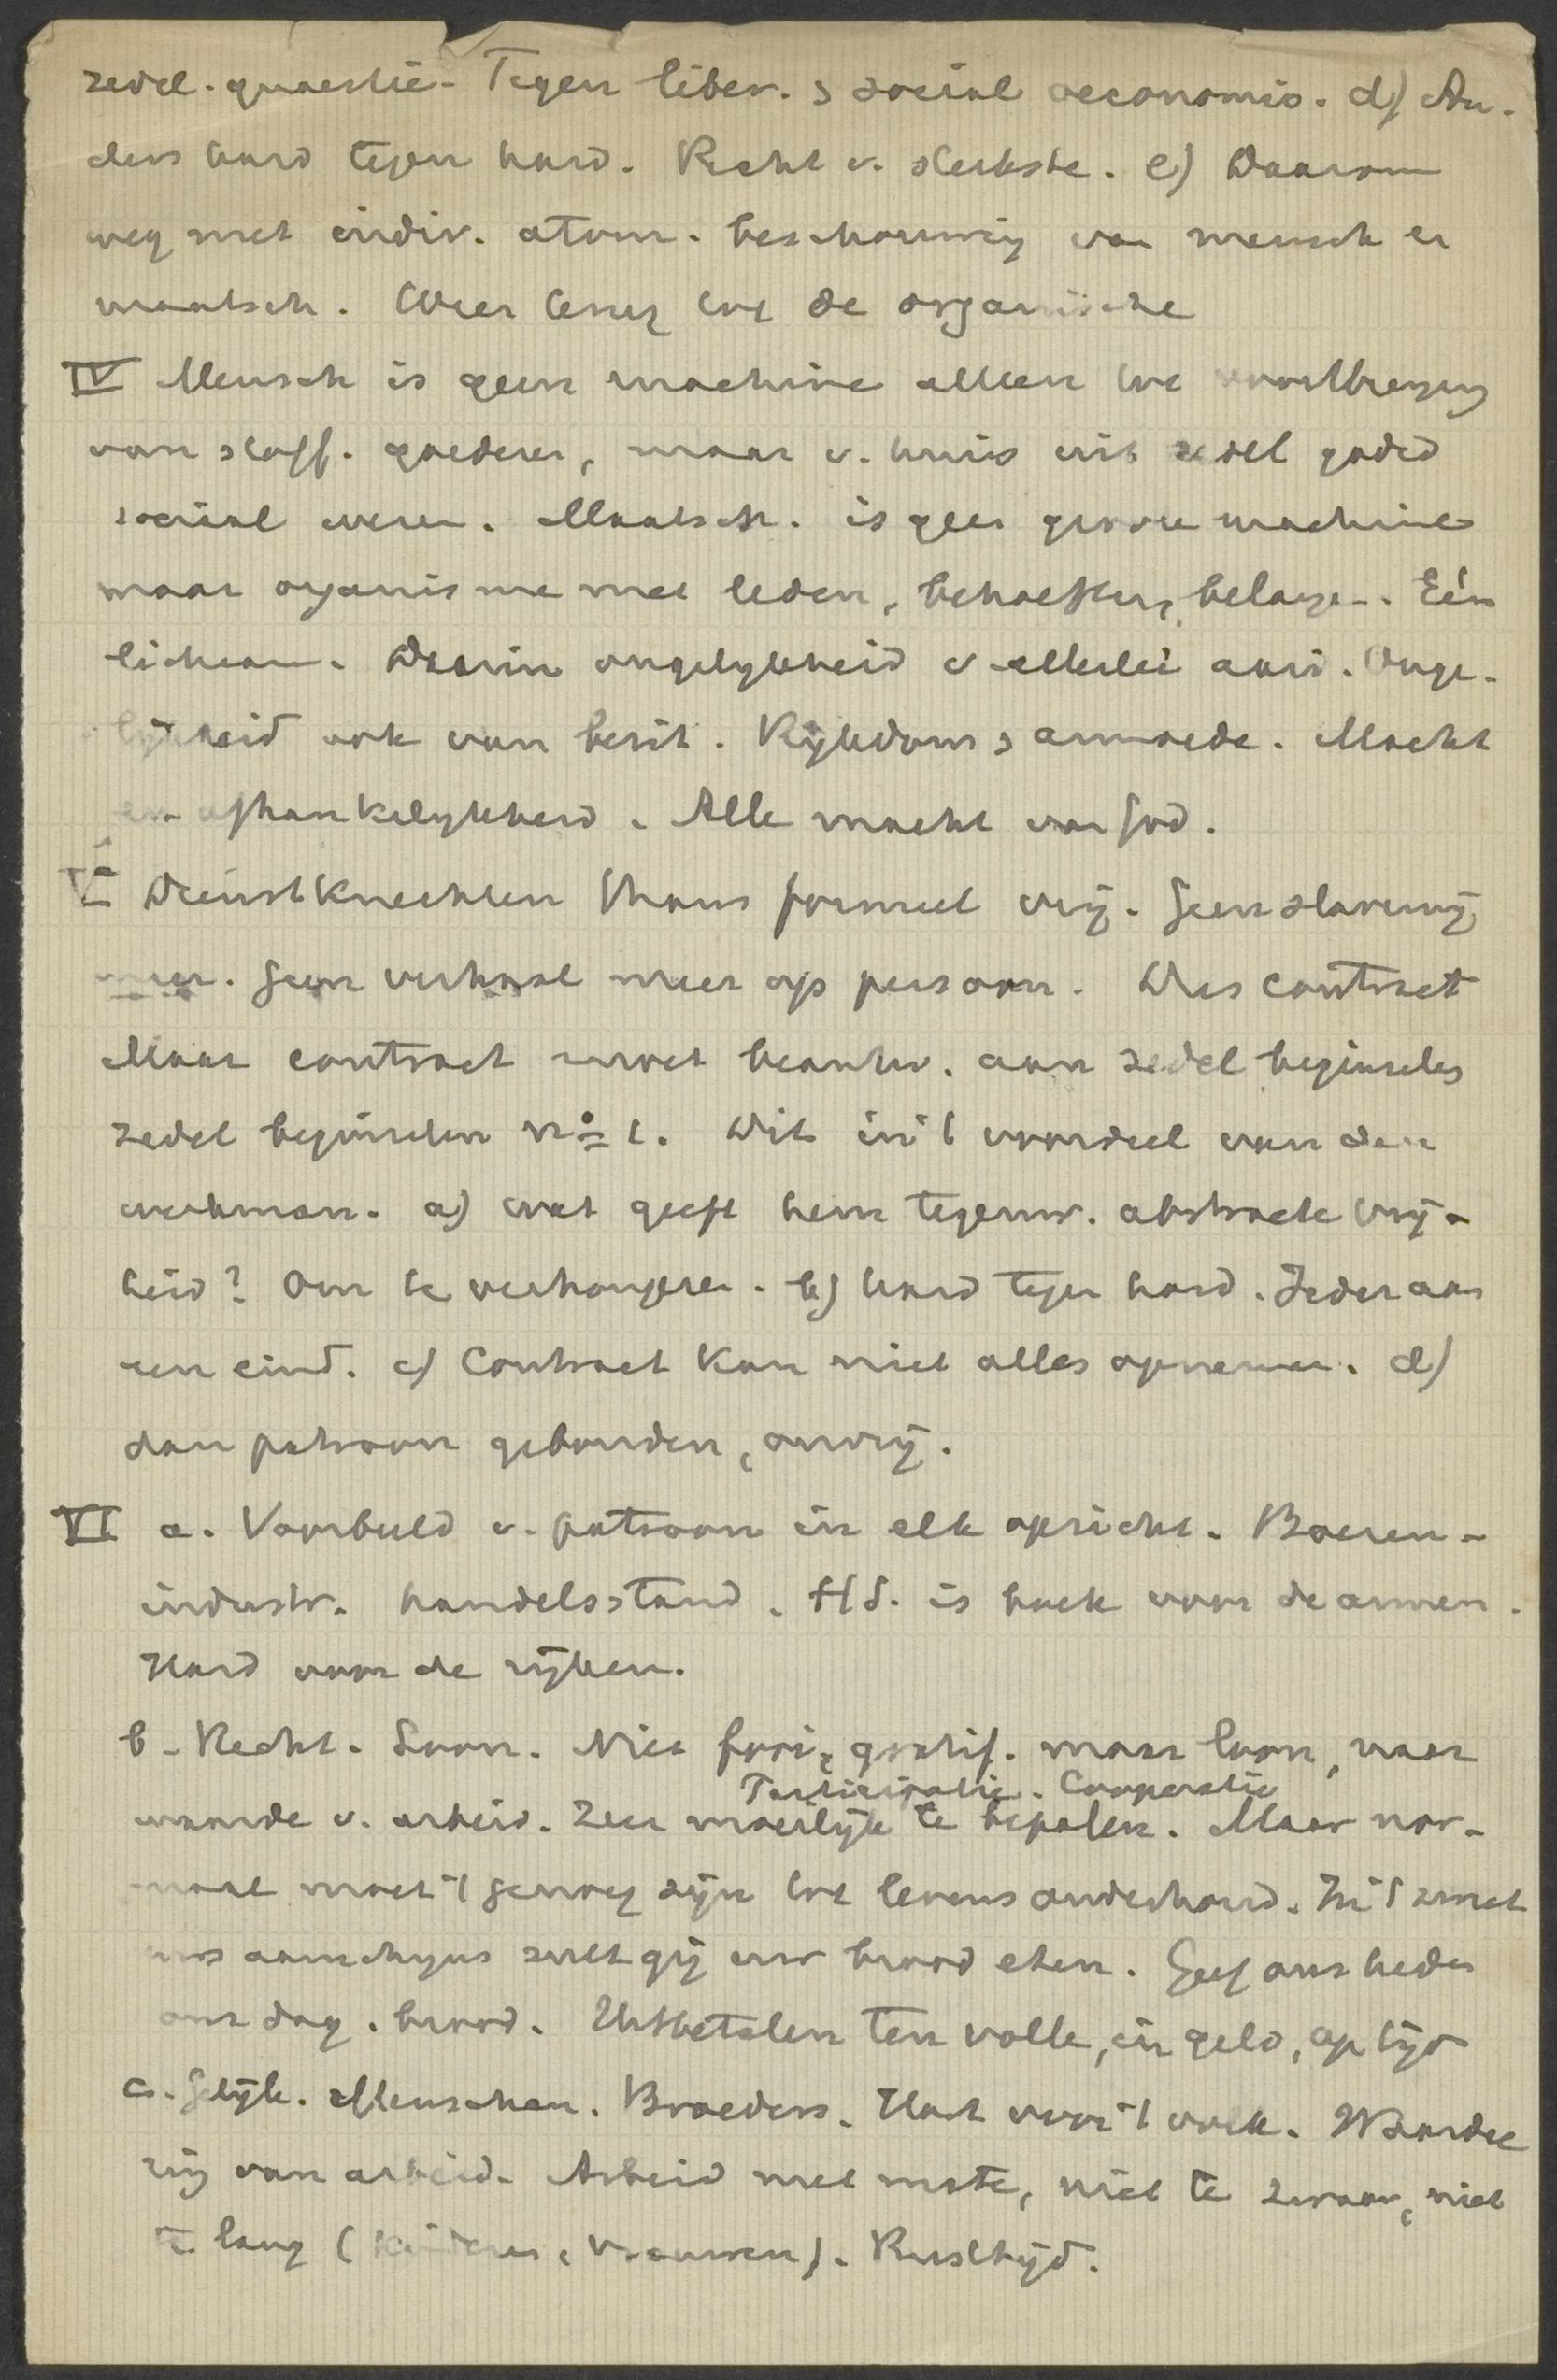 zedel. quaestie. Tegen liber. & sociaal oeconomie. d) An-
ders hard tegen hard. Recht v. sterkste. e) Daarom
weg met indiv. atom. beschouwing van mensch en
maatsch. Weer terug tot de organische
IV Mensch is geen machine alleen tot voortbrenging
van stoff. goederen, maar v. huis uit zedel godsd
sociaal wezen. Maatsch. is geen groote machine
maar organisme met leden, behoeften, belangen. Eén
lichaam. Daarin ongelykheid v allerlei aard. Onge-
lijkheid ook van bezit. Rykdom & armoede. Macht
en afhankelykheid. Alle macht van God.
V Dienstknechten thans formeel vrij. Geen slavernij
meer. Geen verhaal meer op persoon. Dus contract
Maar contract moet beantw. aan zedel beginselen
zedel beginselen n° 1. Dit in 't voordeel van den
werkman. a) wat geeft hem tegenw. abstracte vrij-
heid? Om te verhongeren. b) hard tegen hard. Ieder aan
een eind. c) Contract kan niet alles opnemen. d)
dan patroon gebonden, onvrij.
VI a. Voorbeeld v. patroon in elk opzicht. Boeren-
industr. handelsstand. HS. is boek voor de armen.
Hard voor de rijken.
b. Recht. Loon. Niet fooi, gratif. maar loon, naar
Participatie. Cooperatie
waarde v. arbeid. Zeer moeilijk te bepalen. Maar nor-
maal moet 't genoeg zijn tot levensonderhoud. In 't zweet
uws aanschyns zult gij uw brood eten. Geef ons heden
ons dag. brood. Uitbetalen ten volle, in geld, op tijd
c. Gelijk. Menschen. Broeders. Hart voor 't volk. Waardee
ring van arbeid. Arbeid met mate, niet te zwaar, niet
te lang (kinderen, vrouwen). Rusttijd.